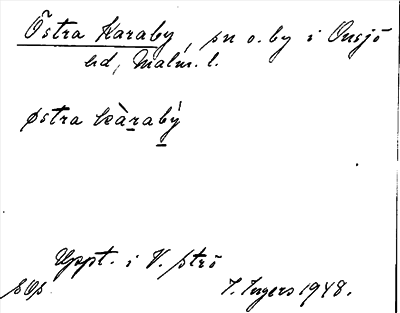 Östra Karaby, sn o. by i Onsjö
hd, Malm. l.
østra kàrabý
Uppt. i V. Strö
SOs I. Ingers 1948.